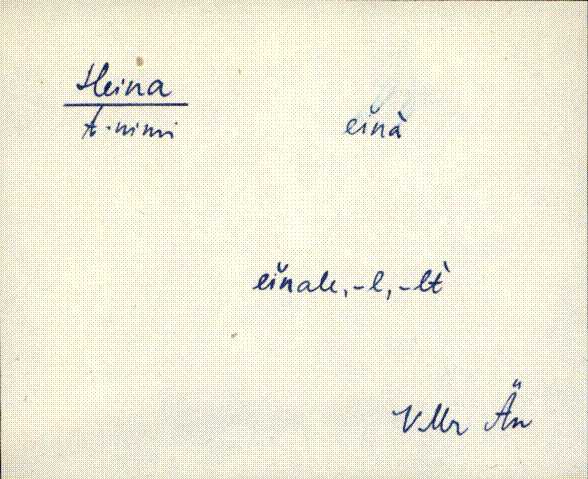 Heina
t. nimi
eĭnà
eĭnale, -l, -lt̀
VMr Än